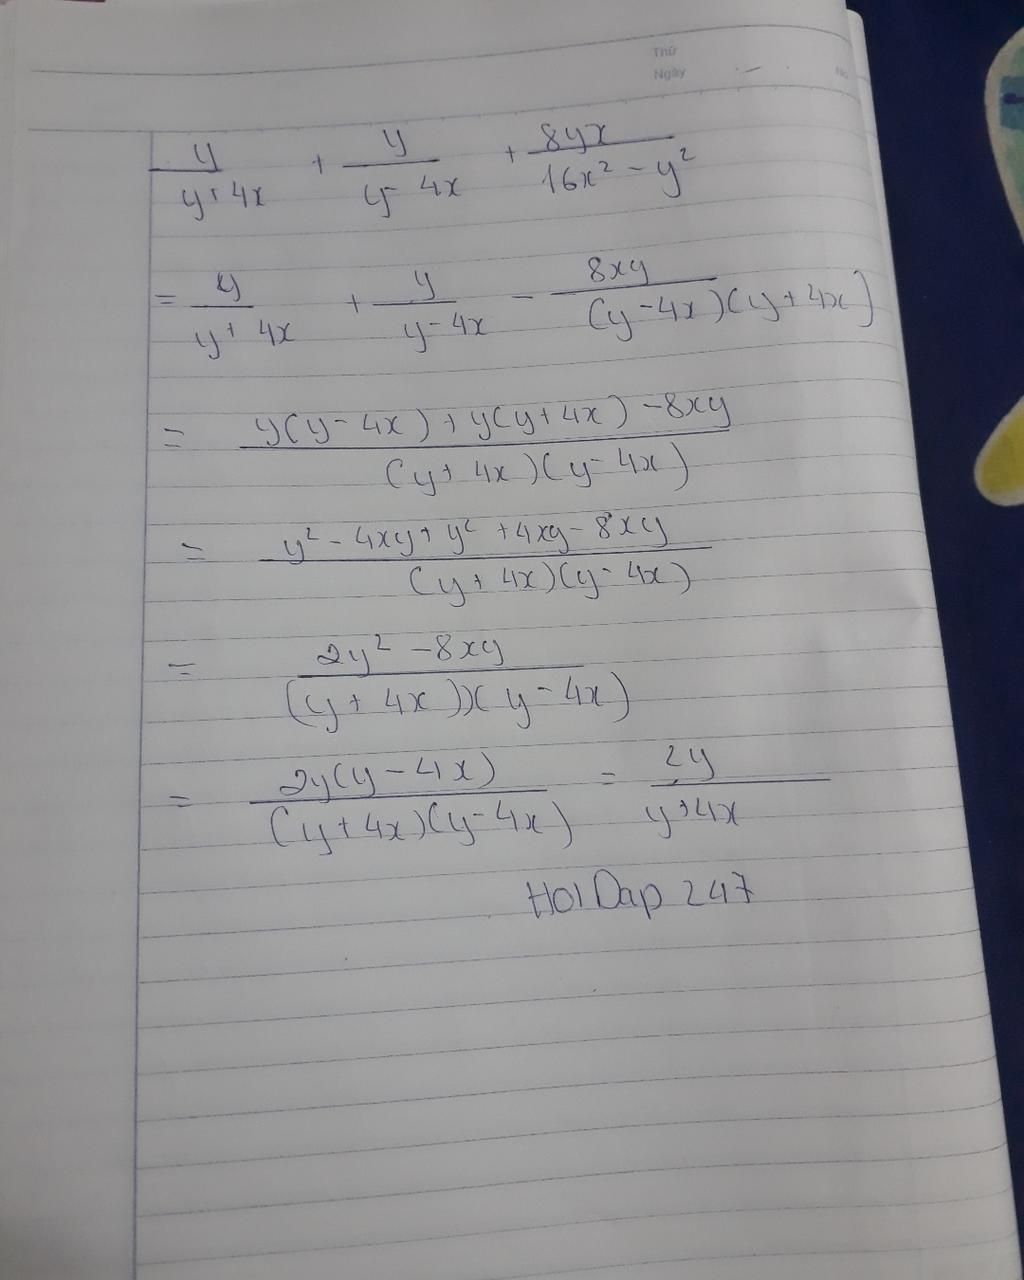 Thứ
Ngày No
y/(y+4x) + y/(y-4x) + 8yx/(16x² - y²)
= y/(y+4x) + y/(y-4x) - 8xy/((y-4x)(y+4x))
= (y(y-4x)+y(y+4x)-8xy)/((y+4x)(y-4x))
= (y²-4xy+y²+4xy-8xy)/((y+4x)(y-4x))
= (2y²-8xy)/((y+4x))(y-4x)
= 2y(y-4x)/((y+4x)(y-4x)) = 2y/(y+4x)
HoiDap 247